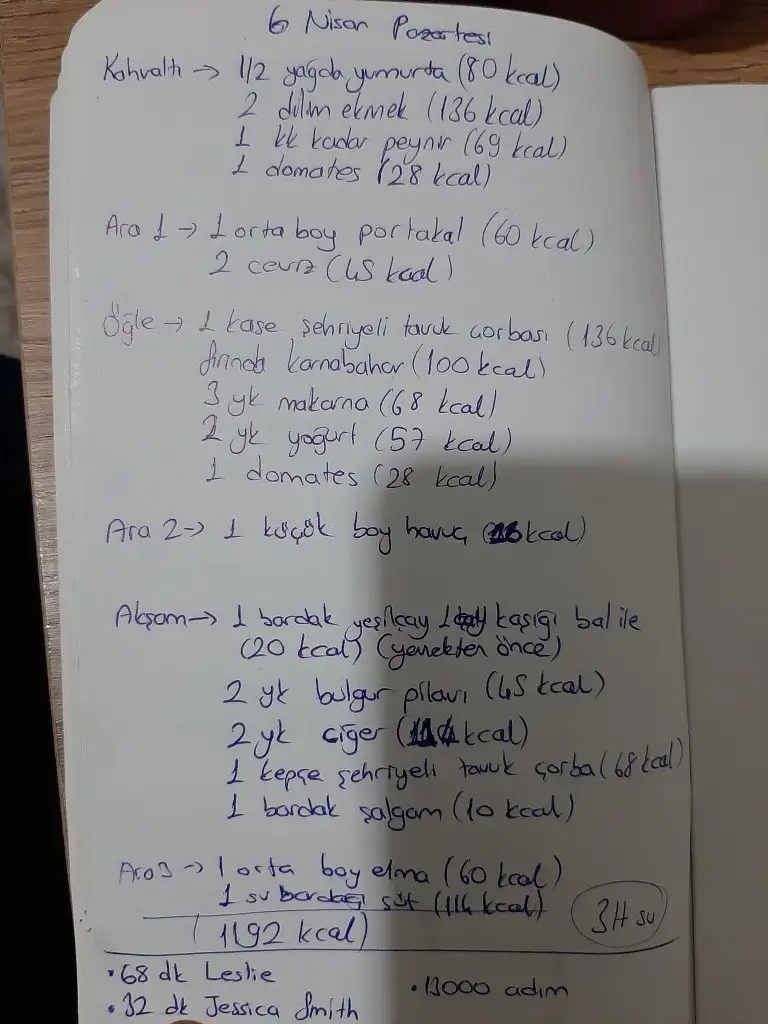 6 Nisan Pazartesi
Kahvaltı → 1/2 yağda yumurta (80 kcal)
2 dilim ekmek (136 kcal)
1 kk kadar peynir (69 kcal)
1 domates (28 kcal)
Ara 1 → 1 orta boy portakal (60 kcal)
2 ceviz (45 kcal)
Öğle → 1 kase şehriyeli tavuk çorbası (136 kcal
fırında karnabahar (100 kcal)
3 yk makarna (68 kcal)
2 yk yoğurt (57 kcal)
1 domates (28 kcal)
Ara 2 → 1 küçük boy havuç (16 kcal)
Akşam → 1 bardak yeşilçay 1 çay kaşığı bal ile
(20 kcal) (yemekten önce)
2 yk bulgur pilavı (45 kcal)
2 yk ciğer ( kcal)
1 kepçe şehriyeli tavuk çorba (68 kcal)
1 bardak şalgam (10 kcal)
Ara 3 → 1 orta boy elma (60 kcal)
1 su bardağı süt (114 kcal)
(1192 kcal)
3 lt su
• 68 dk Leslie
• 32 dk Jessica Smith
• 13000 adım